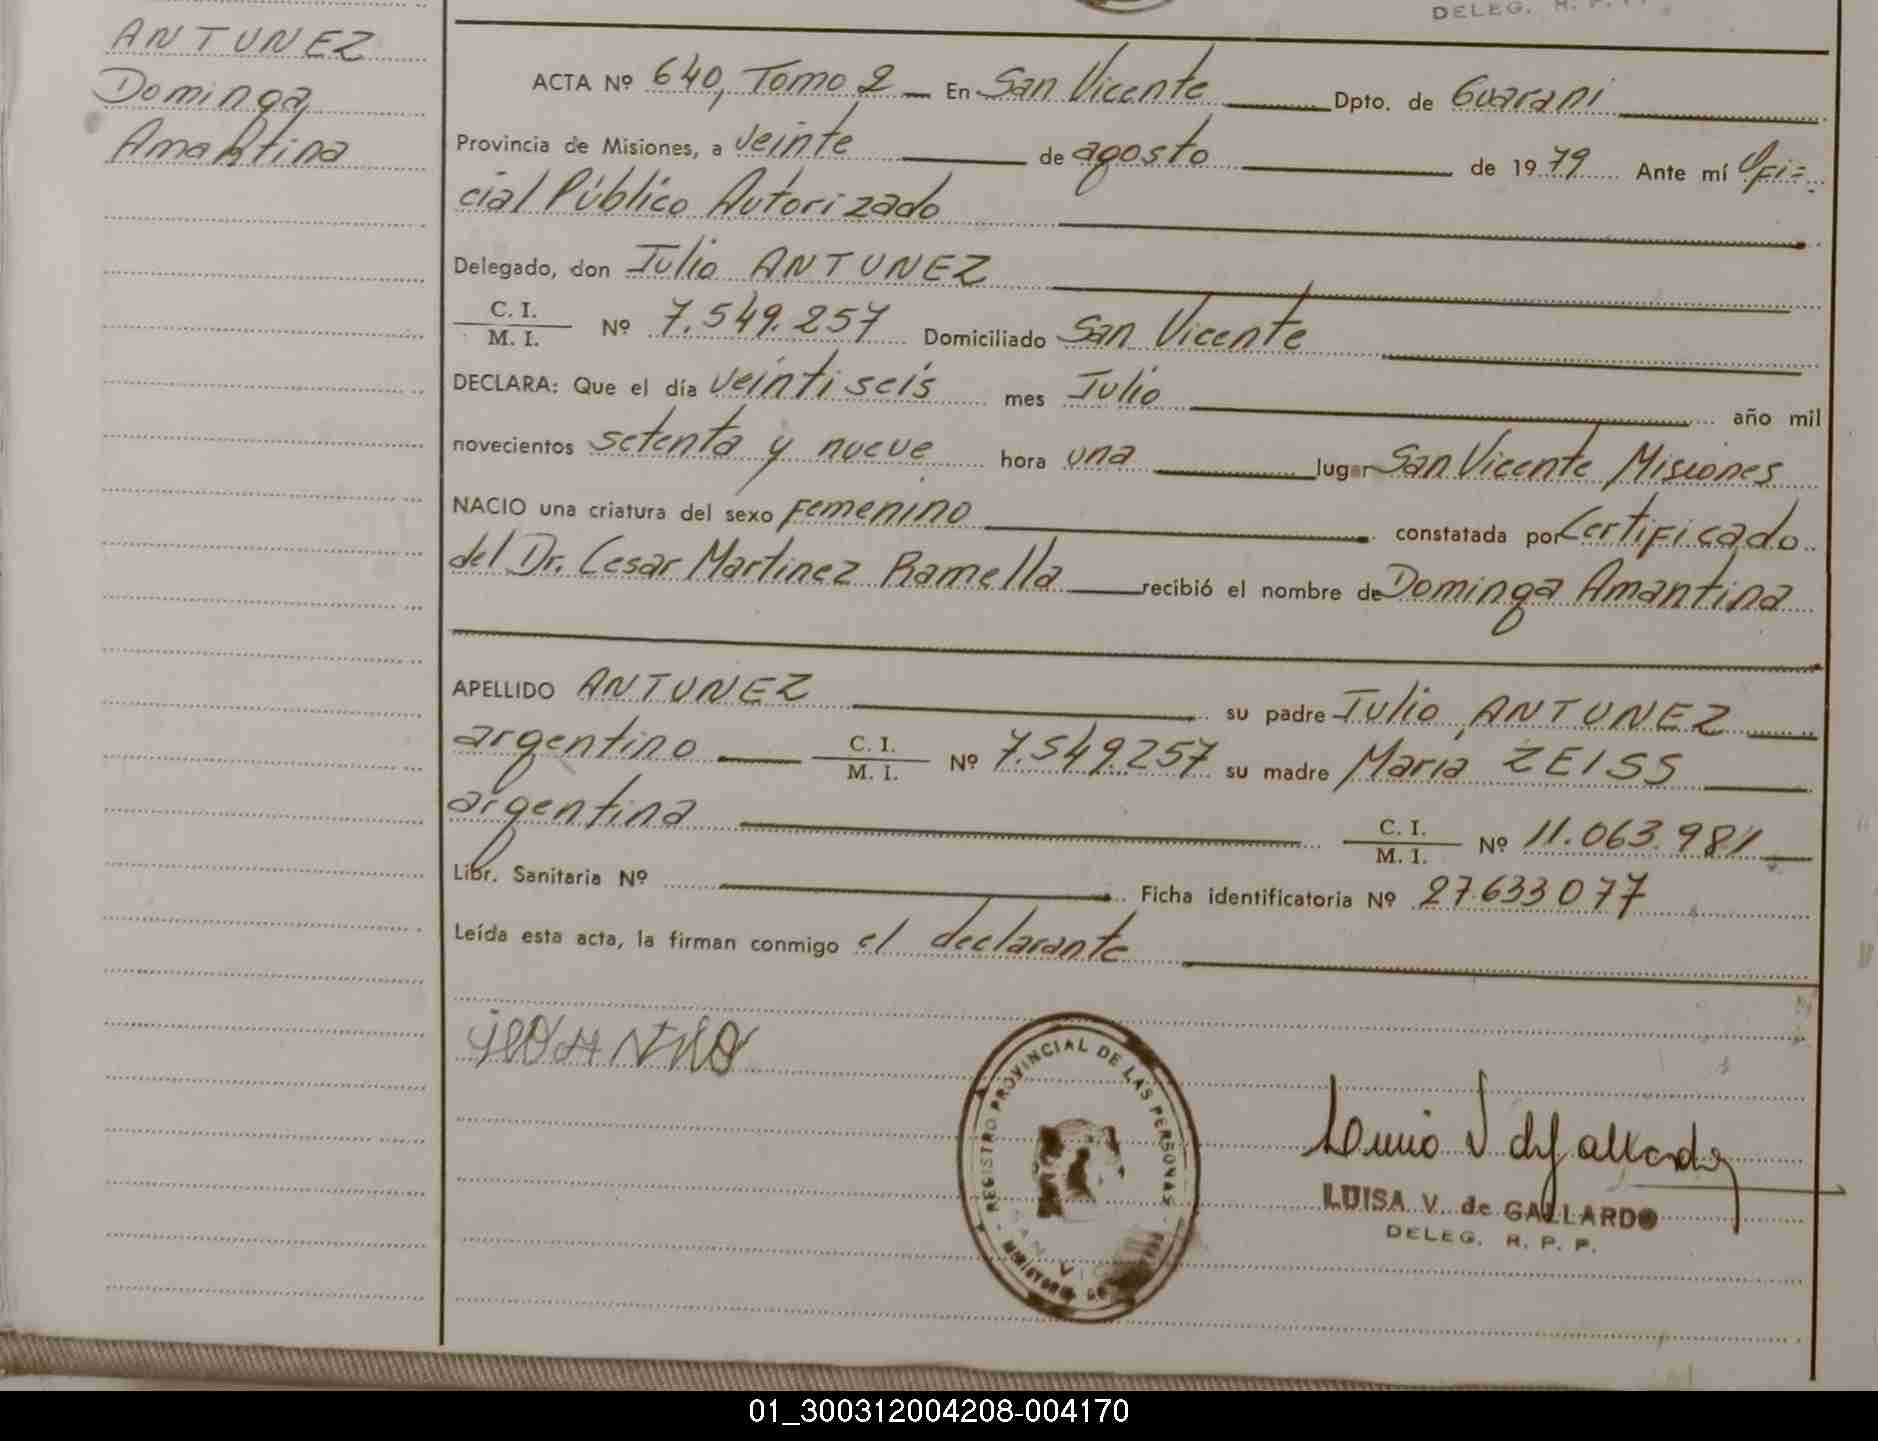 DELEG. R. P. P.
ANTUNEZ
Dominga
Amantina
ACTA Nº 640, Tomo 2 En San Vicente Dpto. de Guarani
Provincia de Misiones, a veinte de agosto de 1979 Ante mí Ofi=
cial Público Autorizado
Delegado, don Julio ANTUNEZ
C. I.
M. I. Nº 7.549.257 Domiciliado San Vicente
DECLARA: Que el día veintiseis mes Julio año mil
novecientos setenta y nueve hora una lugar San Vicente Misiones
NACIO una criatura del sexo Femenino constatada por Certificado
del Dr. Cesar Martinez Ramella recibió el nombre de Dominga Amantina
APELLIDO ANTUNEZ su padre Julio ANTUNEZ
argentino C. I.
M. I. Nº 7.549.257 su madre Maria ZEISS
argentina C. I.
M. I. Nº 11.063.981
Libr. Sanitaria Nº Ficha identificatoria Nº 27.633077
Leída esta acta, la firman conmigo el declarante
REGISTRO PROVINCIAL DE LAS PERSONAS
LUISA V. de GALLARDO
DELEG. R. P. P.
01_300312004208-004170